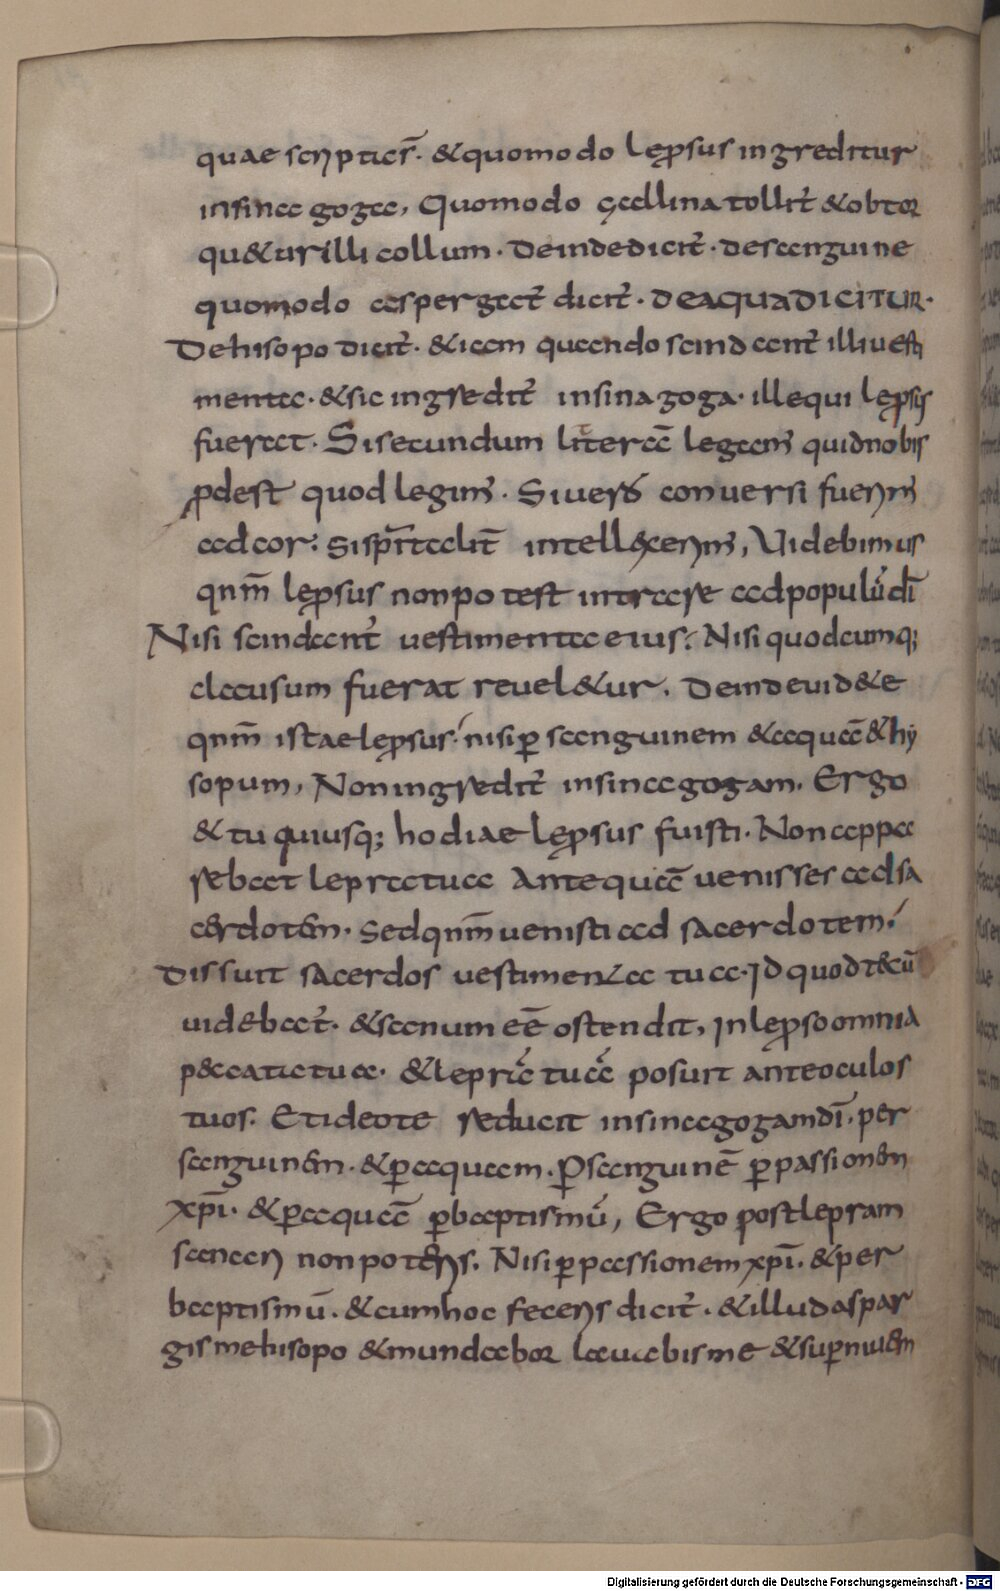 quae scriptas̄. &quomodo lep̱sus ingreditur
insinagoga, Quomodo gallina tollit̄ &obtor
qu&ur illi collum. Deindedicit̄. desanguine
quomodo aspergat̄ dicit̄. DEAQUADICITUR.
Dehisopo dicit̄. &iam quando scindant̄ illi uesti
menta. &sic ingredit̄ insinagoga. illequi lep̱sus
fuerat. Sisecundum literā̄ legam̄ quidnobis
ꝓdest quod legim̄. Siuers̄ conuersi fuerim̄
adcor. sisp̄ritalit̄ intell&xerim̄, Uidebimus
qnm̄ lep̱sus nonpotest intrare adpopulū dī
Nisi scindant̄ uestimenta eius. Nisi quodcumq;
clausum fuerat reuel&ur. Deindeuid&e
qnm̄ istaelep̱sus. nisiꝑ sanguinem &aquā &hy
sopum, Noningredit̄ insinagogam. Ergo
& tu quiusq; hodiae lep̱sus fuisti. Non appa
rebat lepratua Antequā uenisses adsa
cerdotem. Sedqnm̄uenisti ad sacerdotem.
Dissuit sacerdos uestimenta tua. Id quodt&cū
uidebat̄. &sanum eē̄ ostendit, Inlep̱soomnia
p&catatua. &leprā tuā posuit anteoculos
tuos. Etideote reducit insinagogamdī. per
sanguinem. &ꝑaquam. Ꝑsanguinē ꝑpassionem
xp̄i. &ꝑaquā ꝑbaptismū, Ergo postlepram
sanari nonpoteris. Nisiꝑpassionem xp̄i. &per
baptismū. &cumhoc feceris dicit̄. &illudaspar
gismehisopo &mundabor lauabisme &suꝑniuem
Digitalisierung gefördert durch die Deutsche Forschungsgemeinschaft - DFG